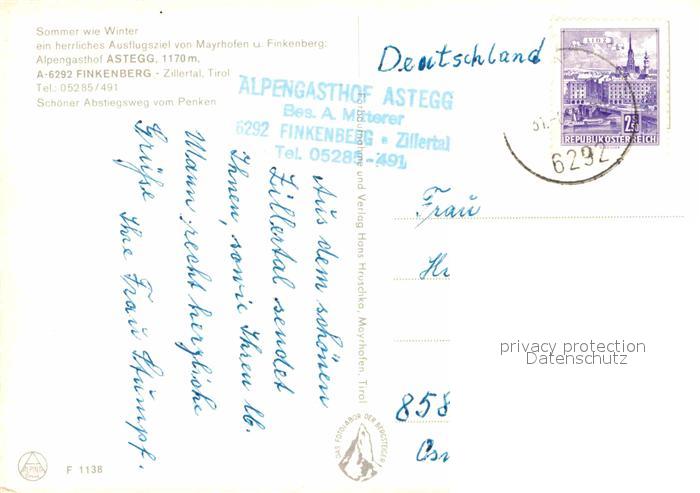 Sommer wie Winter
ein herrliches Ausflugsziel von Mayrhofen u. Finkenberg:
Alpengasthof ASTEGG, 1170 m,
A-6292 FINKENBERG - Zillertal, Tirol
Tel.: 05285/491
Schöner Abstiegsweg vom Penken
ALPENGASTHOF ASTEGG
Bes. A. Mitterer
6292 FINKENBERG • Zillertal
Tel. 05285-491
Aus dem schönen
Zillertal sendet
Ihnen, sowie Ihren lb.
Mann recht herzliche
Grüße Ihre Frau Stumpf.
Farbaufnahme und Verlag Hans Hruschka, Mayrhofen, Tirol
DAS FOTOLABOR DER BERGSTEIGER
F 1138
Deutschland
LINZ
REPUBLIK ÖSTERREICH
6292
Frau
858
privacy protection
Datenschutz